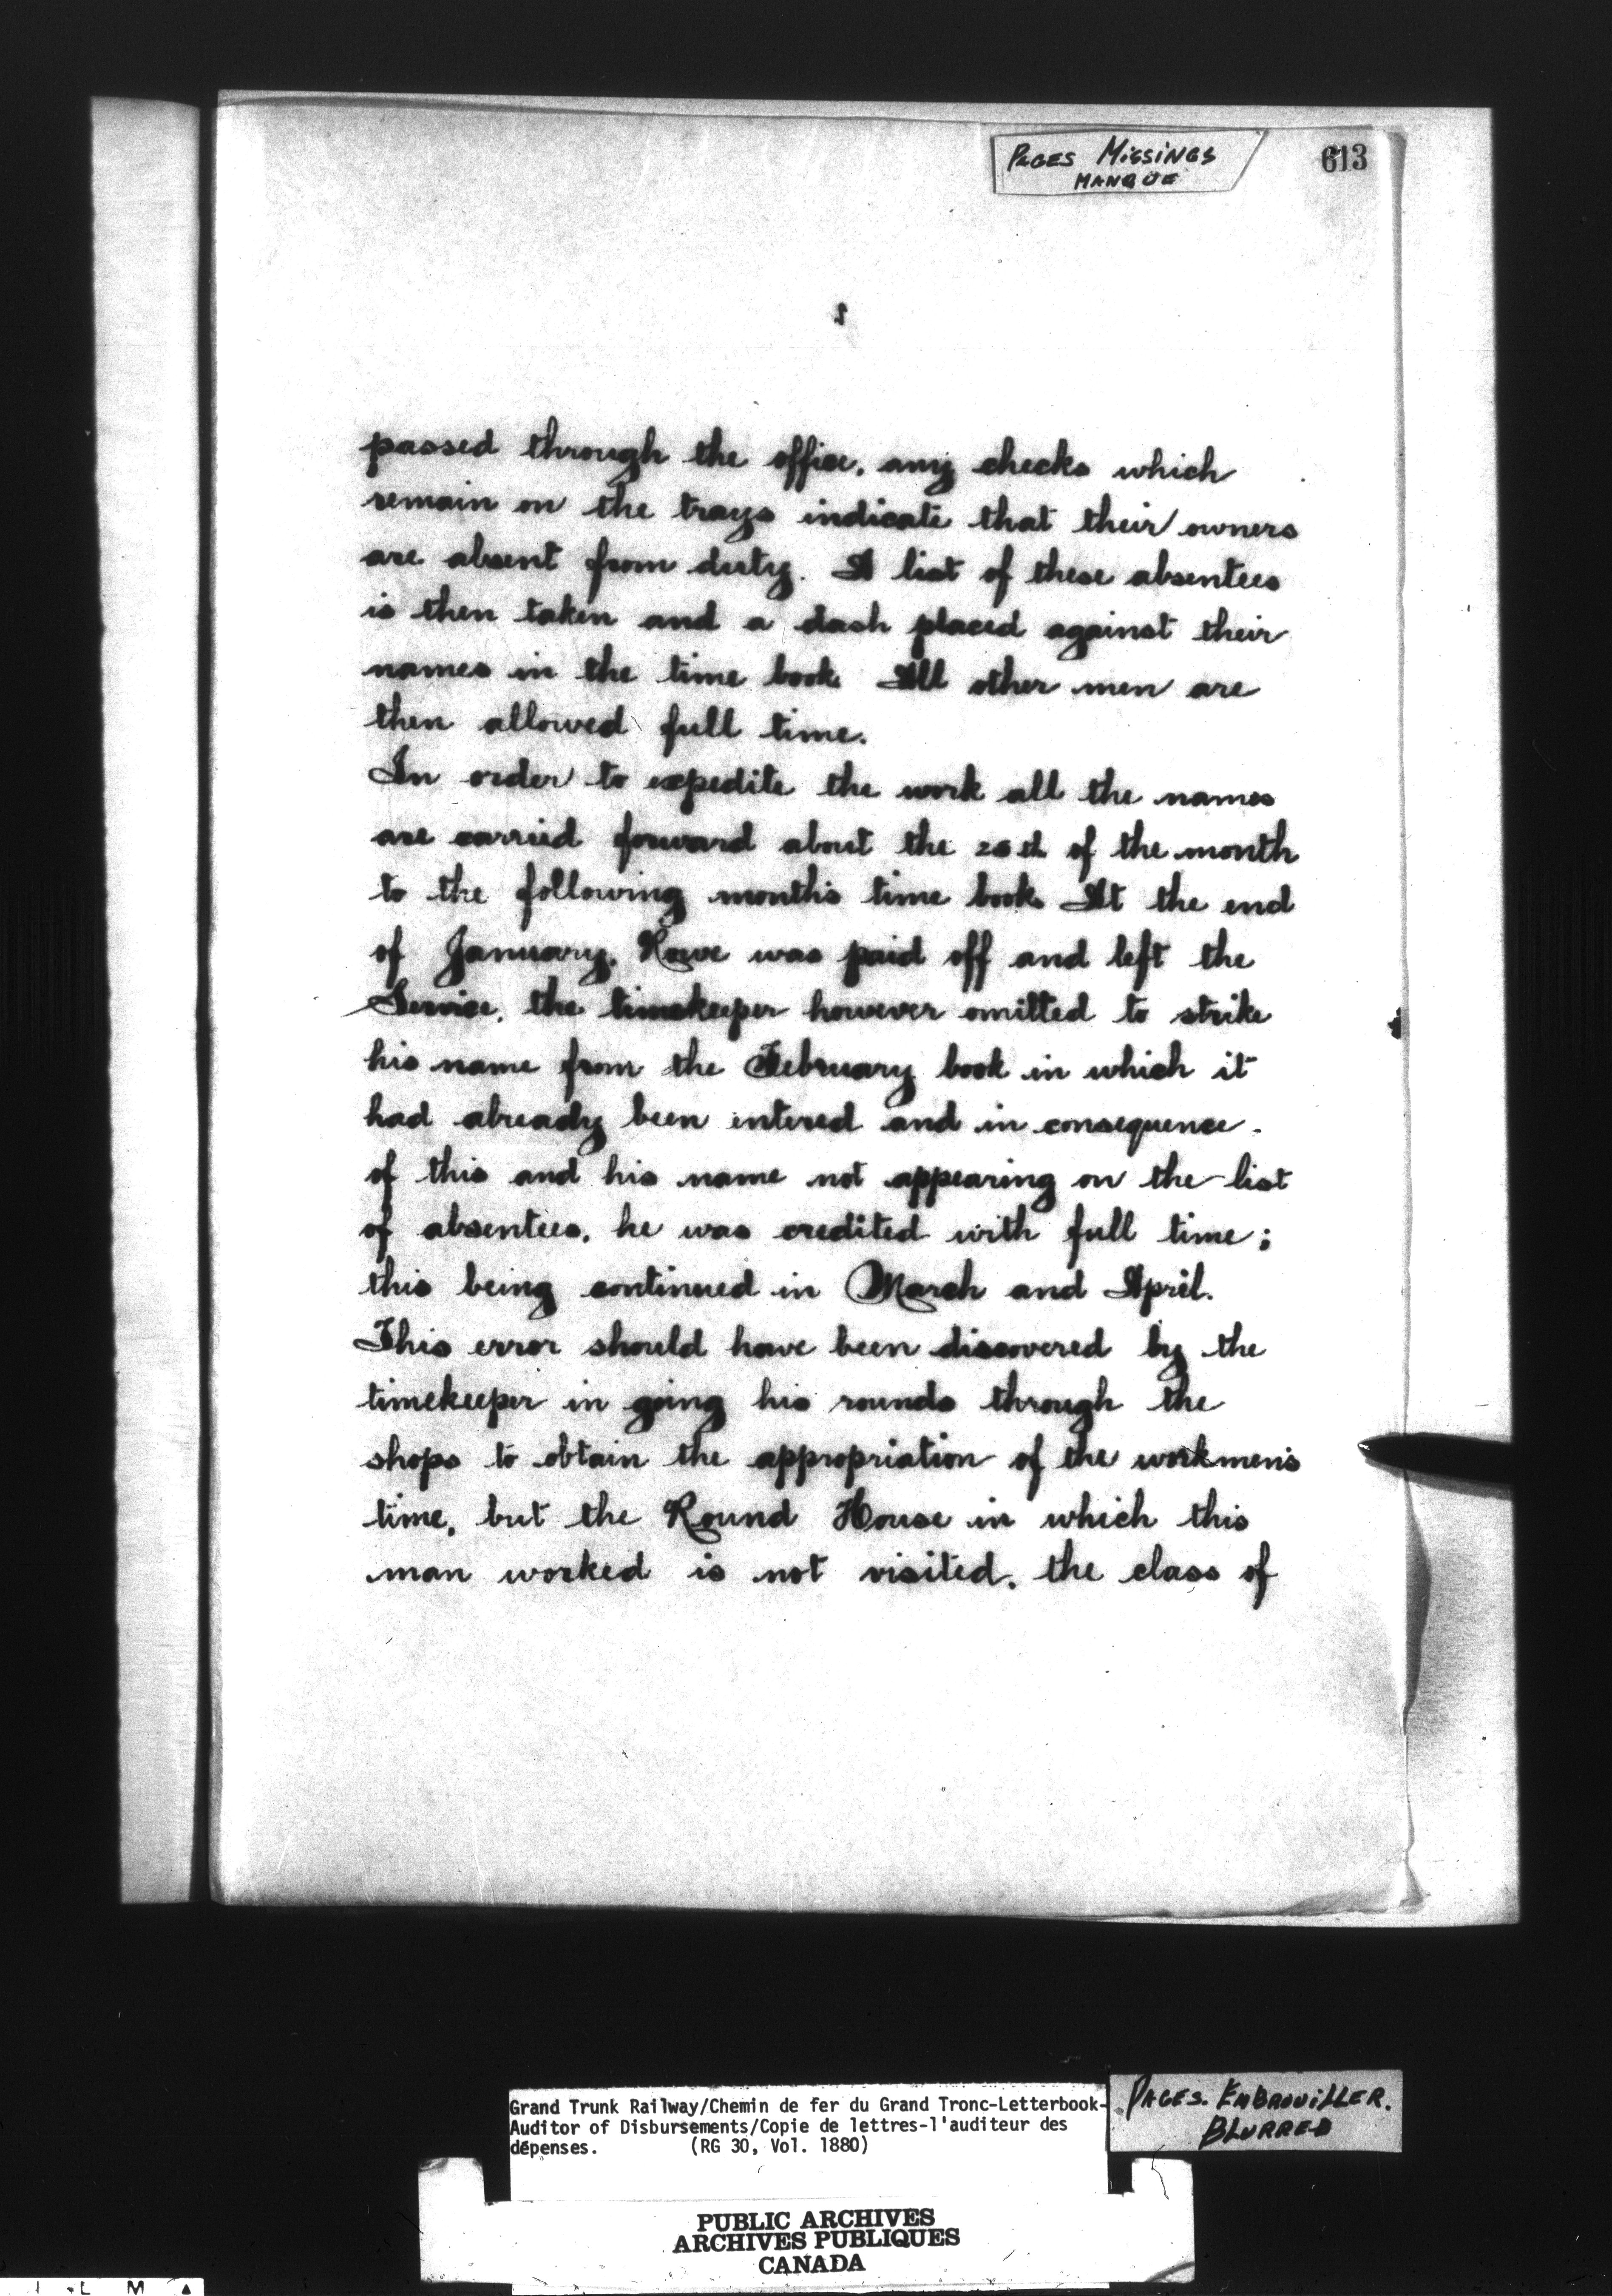 PAGES MISSINGS
MANQUE
613
passed through the office, any checks which
remain on the trays indicate that their owners
are absent from duty. A list of these absentees
is then taken and a dash placed against their
names in the time book. All other men are
then allowed full time.
In order to expedite the work all the names
are carried forward about the of the month
to the following month's time book. At the end
of January, was paid off and left the
Service, the timekeeper however omitted to strike
his name from the February book in which it
had already been entered and in consequence
of this and his name not appearing on the list
of absentees, he was credited with full time;
this being continued in March and April.
This error should have been discovered by the
timekeeper in going his rounds through the
shops to obtain the appropriation of the workmen's
time, but the Round House in which this
man worked is not visited, the class of
Grand Trunk Railway/Chemin de fer du Grand Tronc-Letterbook-
Auditor of Disbursements/Copie de lettres-l'auditeur des
dépenses. (RG 30, Vol. 1880)
PAGES. EMBROUILLER.
BLURRED
PUBLIC ARCHIVES
ARCHIVES PUBLIQUES
CANADA